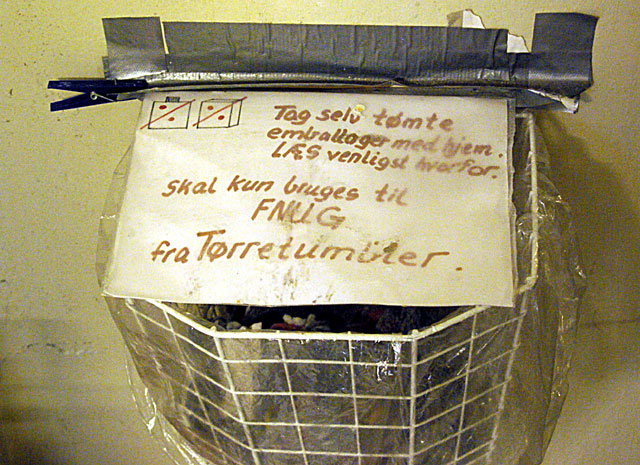 Tag selv tømte
emballager med hjem.
LÆS venligst hvorfor.
skal kun bruges til
FNUG
fra Tørretumbler.